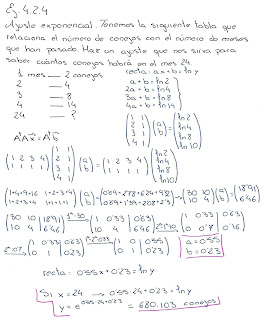 Ej. 4.2.4
Ajuste exponencial. Tenemos la siguiente tabla que
relaciona el número de conejos con el número de meses
que han pasado. Haz un ajuste que nos sirva para
saber cuántos conejos habrá en el mes 24.
1 mes — 2 conejos
2 — 4
3 — 8
4 — 14
24 — ?
recta: ax+b = ln y
a+b = ln 2
2a+b = ln 4
3a+b = ln 8
4a+b = ln 14
AᵗA x̄ = Aᵗ b̄
(1 1; 2 1; 3 1; 4 1) (a; b) = (ln 2; ln 4; ln 8; ln 10)
(1 2 3 4; 1 1 1 1) (1 1; 2 1; 3 1; 4 1) (a; b) = (1 2 3 4; 1 1 1 1) (ln 2; ln 4; ln 8; ln 10)
(30 10; 10 4) (a; b) = (18'91; 6'46)
(30 10 | 18'91; 10 4 | 6'46)
(1 0'33 | 0'63; 0 1 | 0'23)
(1 0 | 0'55; 0 1 | 0'23)
a = 0'55
b = 0'23
recta: 0'55x + 0'23 = ln y
Si x = 24 → 0'55·24 + 0'23 = ln y
y = e^0'55·24+0'23 = 680.103 conejos